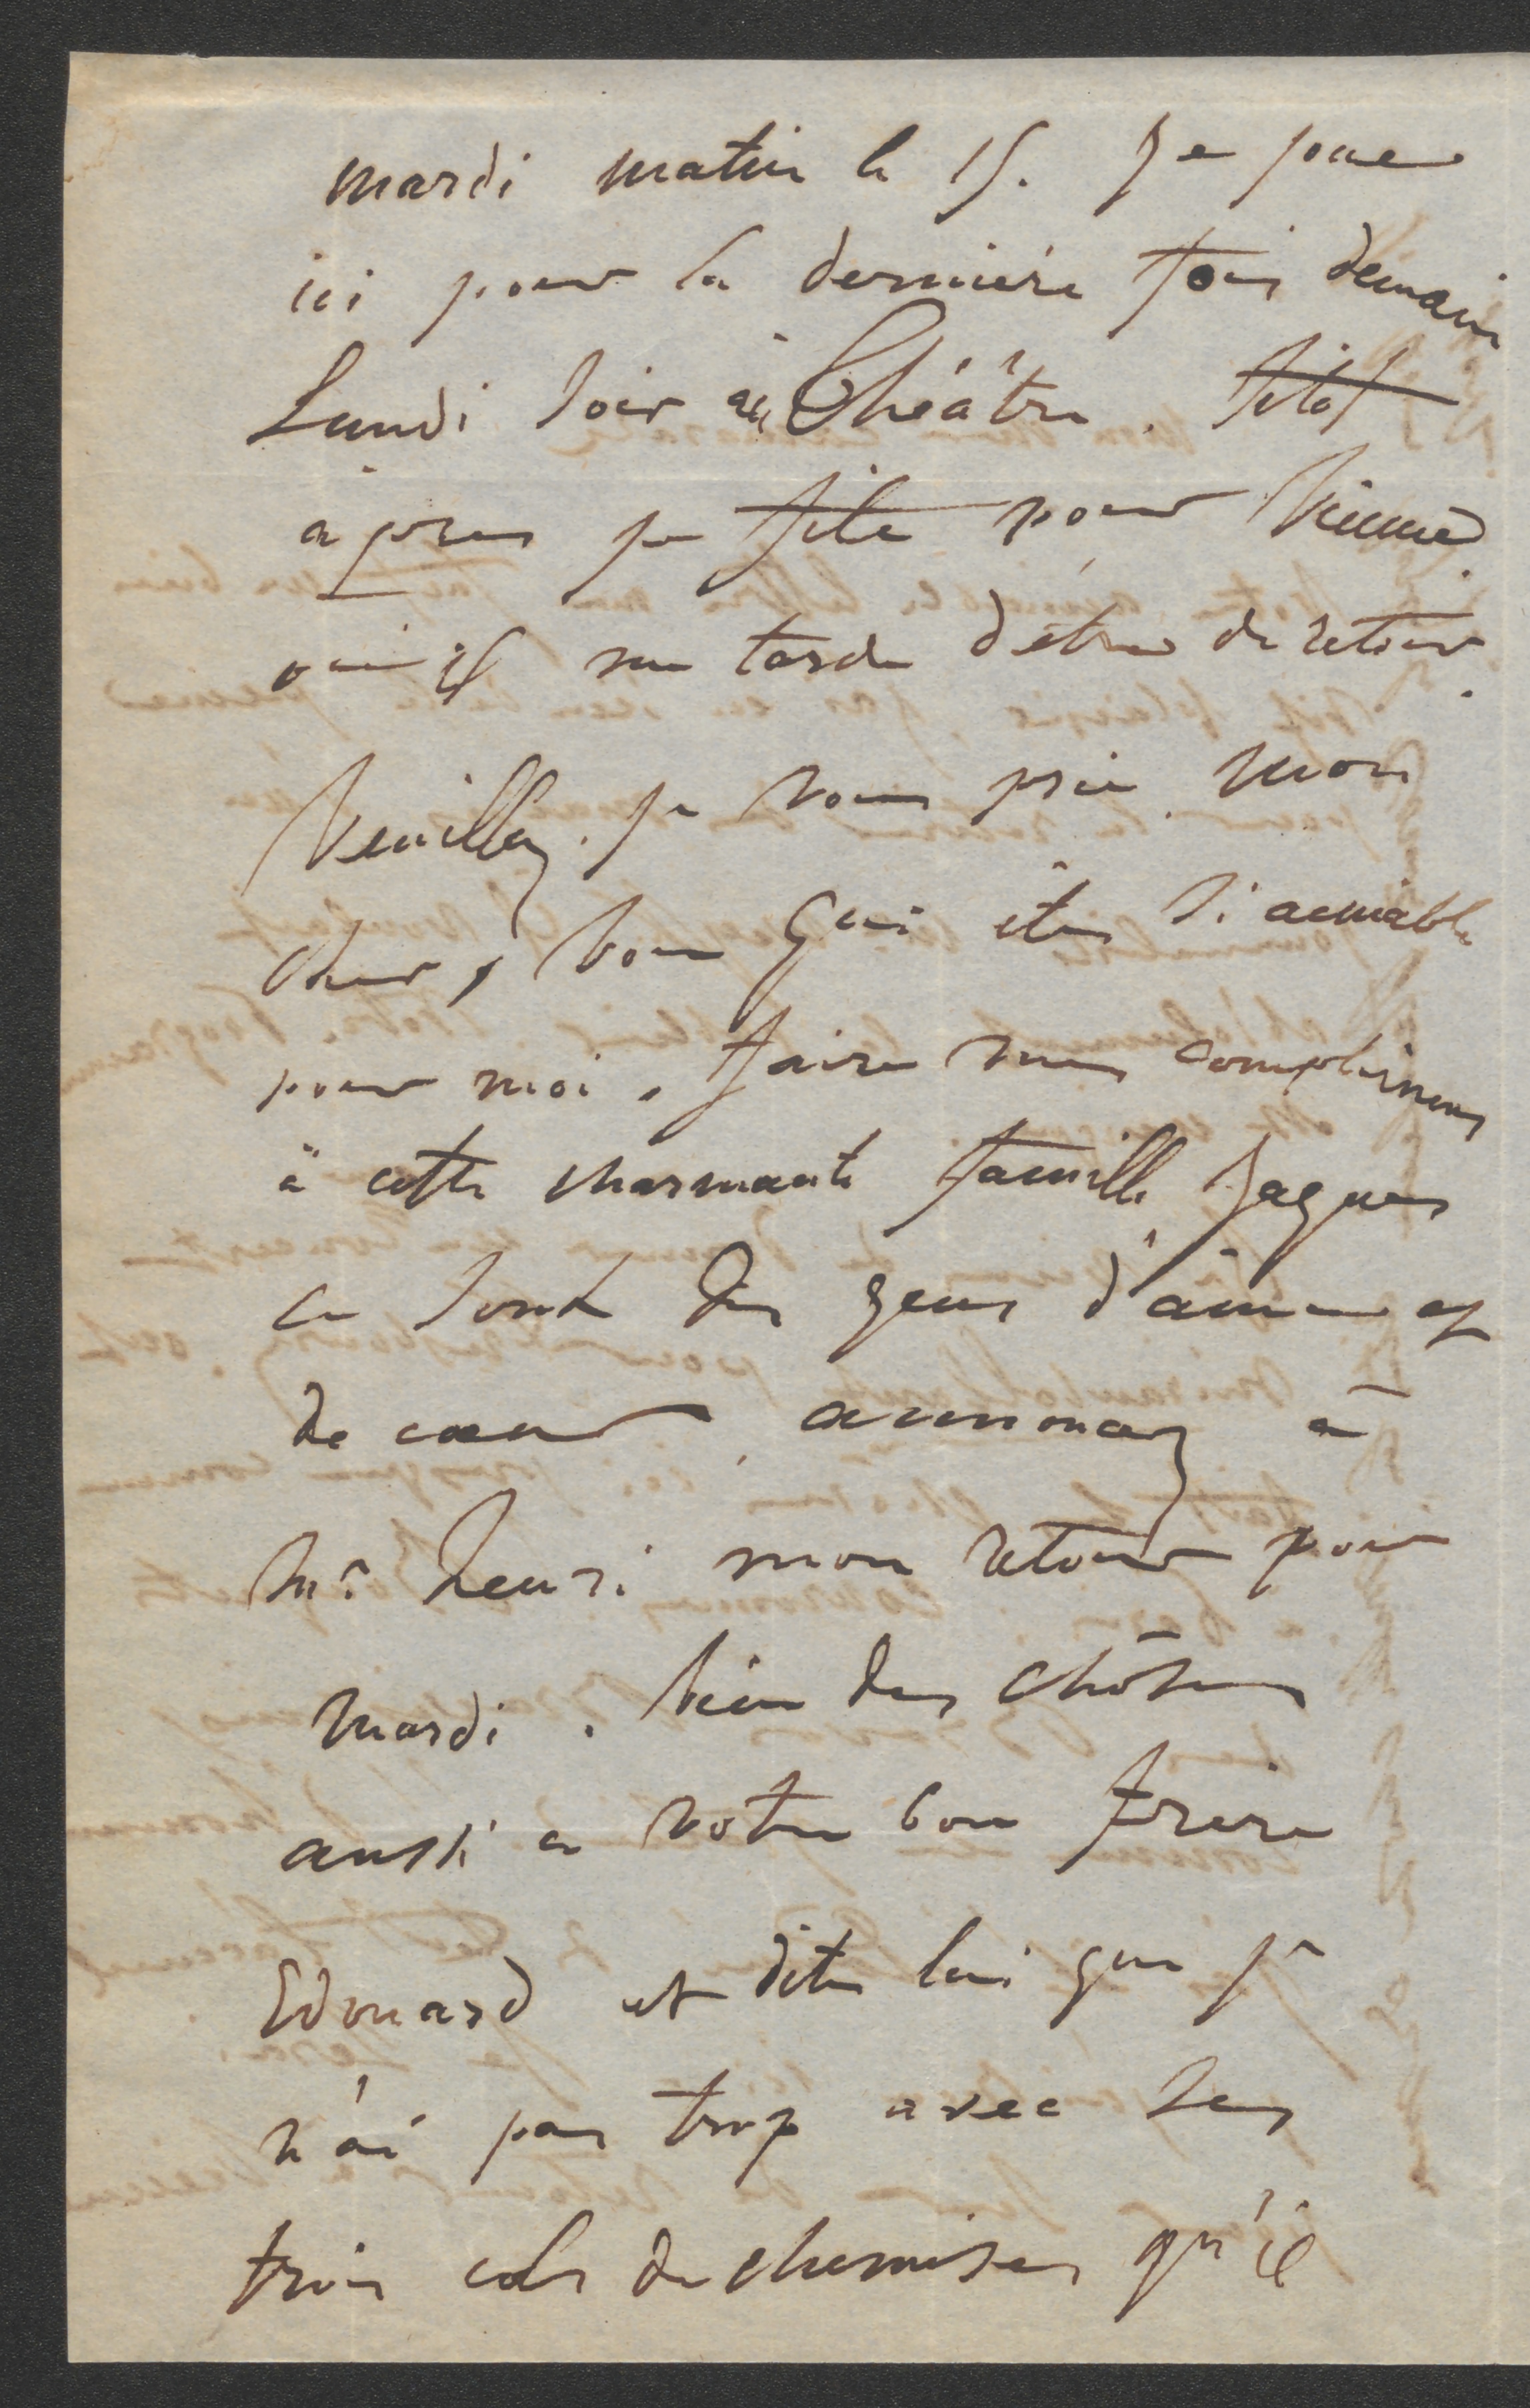 mardi matin le 15. Je joue
ici pour la derniére fois demain
Lundi soir au Théâtre. sitot
aprés je file pour Vienne
ou il me tarde d'etre de retour.
Veuillez. je vous prie mon
cher, vous qui êtes si aimable
pour moi, faire mes complimens
à cette charmante famille Jaques
ce sont des gens d'âme et
de coeur, annoncez à
Mr. Henri mon retour pour
mardi. bien des chôses
aussi a votre bon frère
Edouard et dites lui que je
n'ai pas trop avec ses
trois cols de chemises qu'il